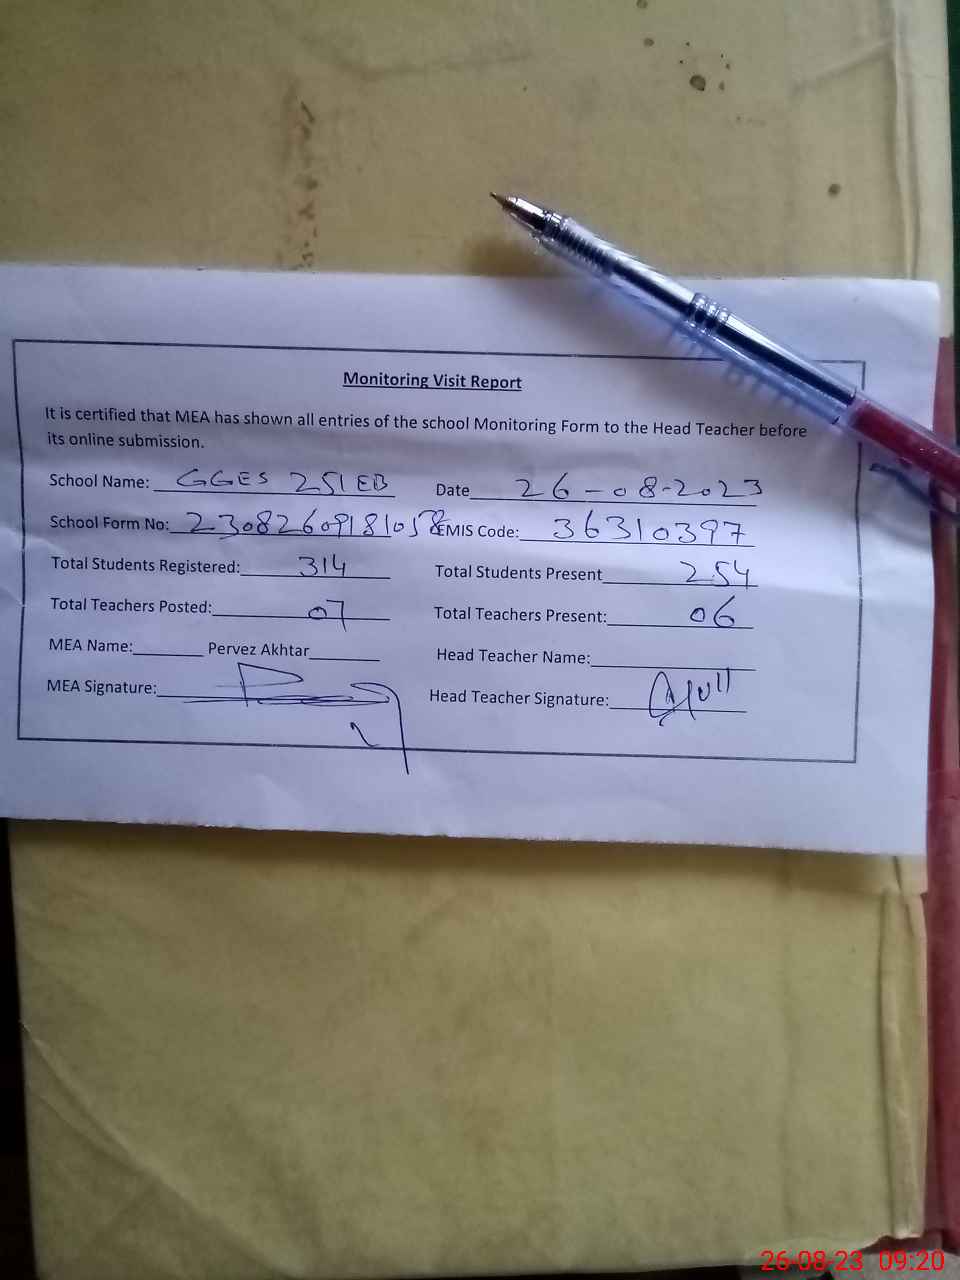 Monitoring Visit Report
It is certified that MEA has shown all entries of the school Monitoring Form to the Head Teacher before
its online submission.
School Name: GGES 251 EB Date 26-08-2023
School Form No: 23082609181058 EMIS Code: 36310397
Total Students Registered: 314 Total Students Present 254
Total Teachers Posted: 07 Total Teachers Present: 06
MEA Name: Pervez Akhtar Head Teacher Name:
MEA Signature: Head Teacher Signature:
26-08-23 09:20